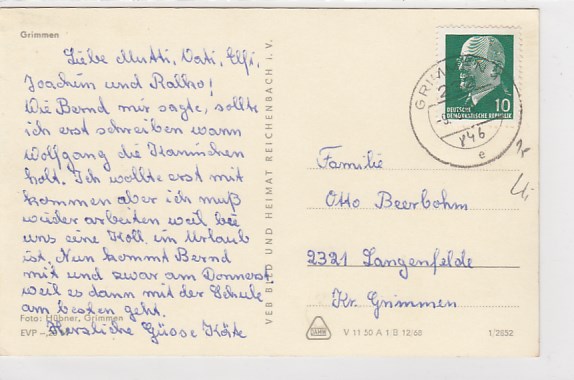 Grimmen
Liebe Mutti, Vati, Elfi,
Joachim und Ralko!
Wie Bernd mir sagte, sollte
ich erst schreiben wann
Wolfgang die Kaninchen
holt. Ich wollte erst mit
kommen aber ich muß
wieder arbeiten weil bei
uns eine Koll. im Urlaub
ist. Nun kommt Bernd
mit und zwar am Donnerst.
weil es dann mit der Schule
am besten geht.
Herzliche Grüsse Käte
Foto: Hübner, Grimmen
EVP
VEB BILD UND HEIMAT REICHENBACH I. V.
GRIMMEN
e
10
DEUTSCHE
DEMOKRATISCHE REPUBLIK
Familie
Otto Beerbohm
2321 Langenfelde
Kr. Grimmen
V 11 50 A 1 B 12/68
1/2852